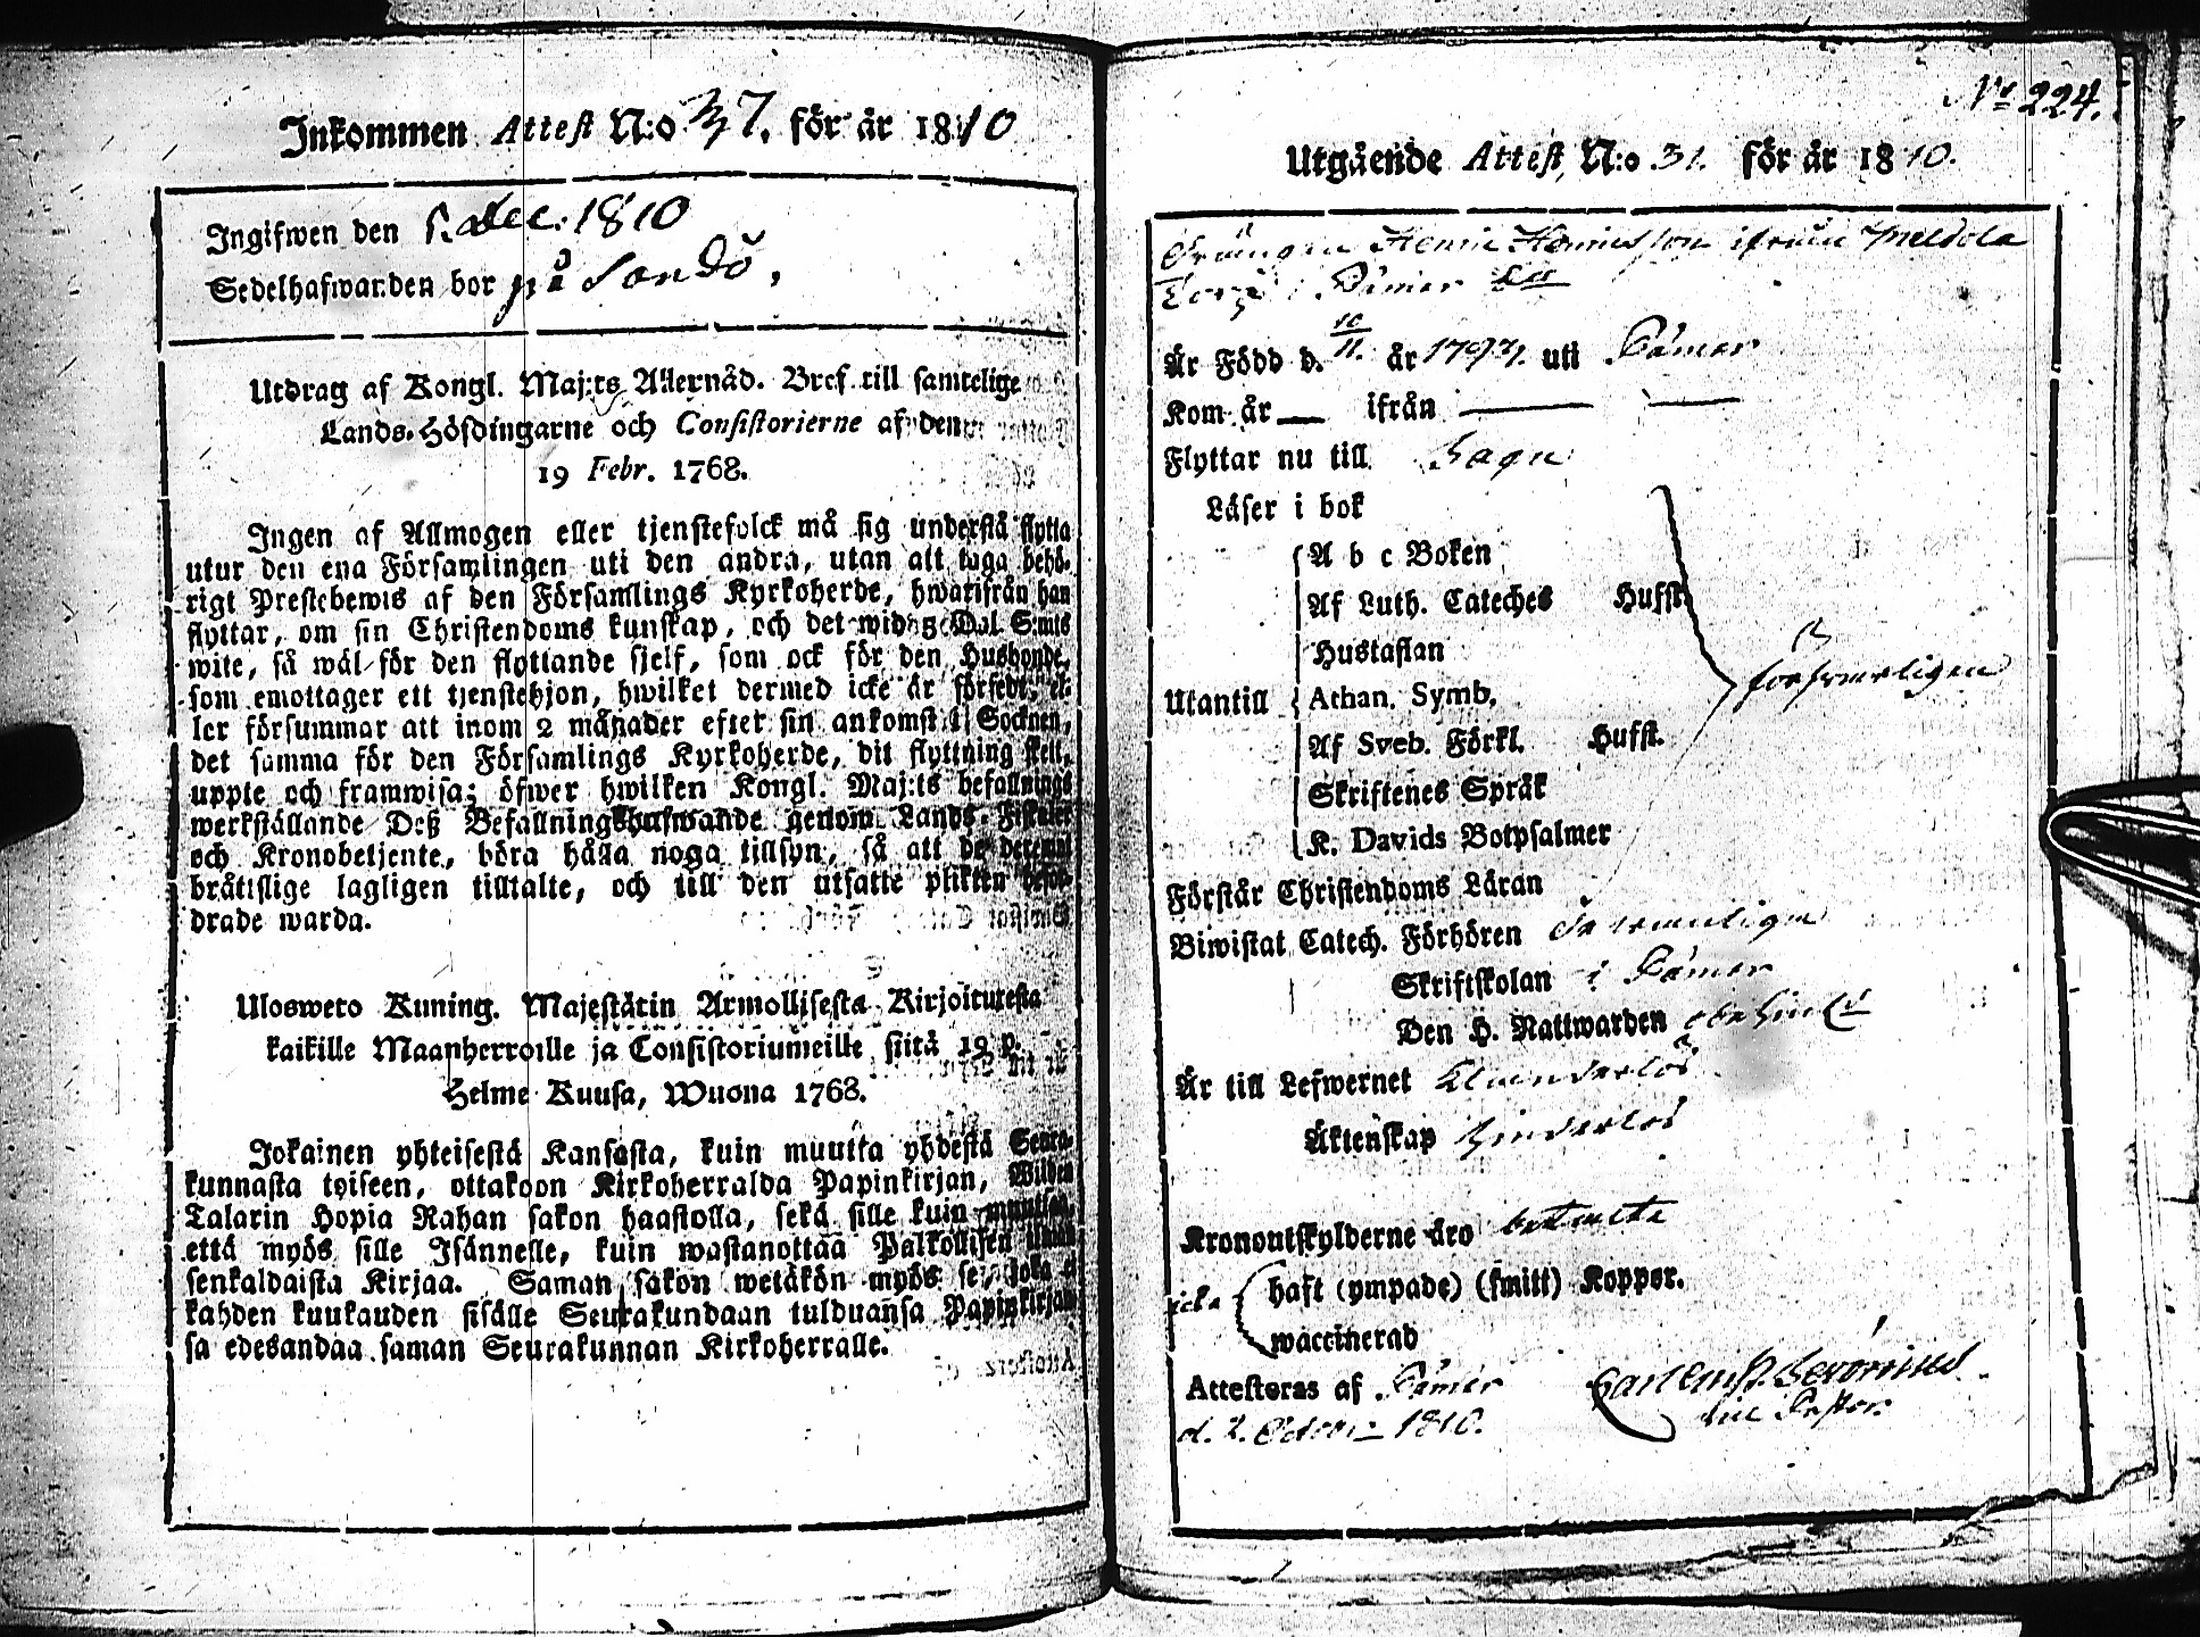 Inkommen Attest N:o 37. för år 1810
Ingifwen den 5. dec. 1810
Sedelhafwanden bor på Sandö,
Utdrag af Kongl. Maj:ts Allernåd. Bref till samtelige
Lands-Höfdingarne och Consistorierne af den
19 Febr. 1768.
Ingen af Allmogen eller tjenstefolck må sig understå flytta
utur den ena Församlingen uti den andra, utan att taga behö-
rigt Prestebewis af den Församlings Kyrkoherde, hwarifrån han
flyttar, om sin Christendoms kunskap, och det wid 3 Dal. S:mts
wite, så wäl för den flyttande sjelf, som ock för den Husbonde,
som emottager ett tjenstehjon, hwilket dermed icke är försedt, el-
ler försummar att inom 2 månader efter sin ankomst i Socknen,
det samma för den Församlings Kyrkoherde, dit flyttning skett,
uppte och framwisa; öfwer hwilken Kongl. Maj:ts befallnings
werkställande Deß Befallningshafwande genom Lands-Fiskaler
och Kronobetjente, böra hålla noga tillsyn, så att de deremot
bråttslige lagligen tilltalte, och till den utsatte plikten befor-
drade warda.
Ulosweto Kuning. Majestätin Armollisesta Kirjoituresta
kaikille Maanherroille ja Consistoriumeille siitä 19 p.
Helme Kuusa, Wuona 1768.
Jokainen yhteisestä Kansasta, kuin muutta yhdestä Seura-
kunnasta toiseen, ottakoon Kirkoherralda Papinkirjan, Wiiden
Talarin Hopia Rahan sakon haastolla, sekä sille kuin muuttaa,
että myös sille Isännelle, kuin wastanottaa Palkollisen ilman
senkaldaista Kirjaa. Saman sakon wetäkön myös se, joka ei
kahden kuukauden sisälle Seurakundaan tulduansa Papinkirjan-
sa edesandaa saman Seurakunnan Kirkoherralle.
No 224.
Utgående Attest, N:o 31. för år 1810.
Drängen Henric Henricsson ifrån
Är Född d. 10/11. år 179 uti Pämar
Kom år — ifrån —
Flyttar nu till Sagu
Läser i bok
A b c Boken
Af Luth. Cateches Hufst.
Hustaflan
Utantill Athan. Symb.
försvarligen
Af Sveb. Förkl. Hufst.
Skriftenes Språk
K. Davids Botpsalmer
Förstår Christendoms Läran
Biwistat Catech. Förhören
Skriftskolan i Pämar
Den H. Nattwarden
Är till Lefwernet klanderlös
Äktenskap hinderlös
Kronoutskylderne äro betalta
icke haft (ympade) (smitt) Koppor.
waccinerad
Attesteras af Pämar
d. 2. 1810. Pastor.